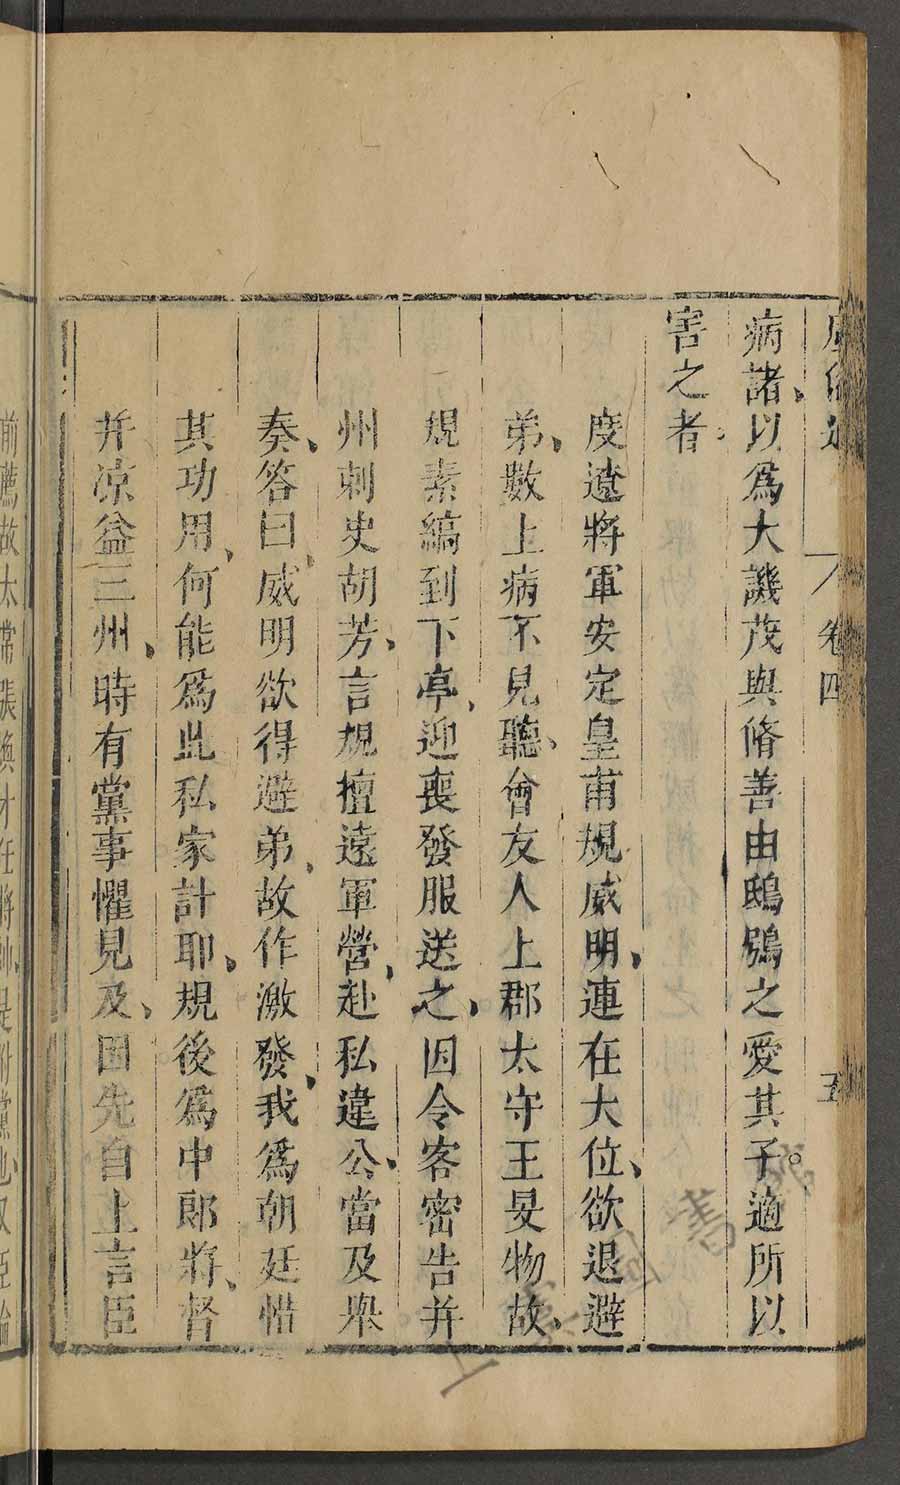 卷四
五
病諸以爲大譏茂與脩善由鴟鴞之愛其子適所以
害之者
度遼將軍安定皇甫規威明連在大位欲退避
弟數上病不見聽會友人上郡太守王旻物故
規素縞到下亭迎喪發服送之因令客密告并
州刺史胡芳言規擅遠軍營赴私違公當及舉
奏答曰威明欲得避弟故作激發我爲朝廷惜
其功用何能爲此私家計耶規後爲中郎將督
并凉益三州時有黨事懼見及因先自上言臣
前薦故太常張奐才任將帥是附黨也又臣論